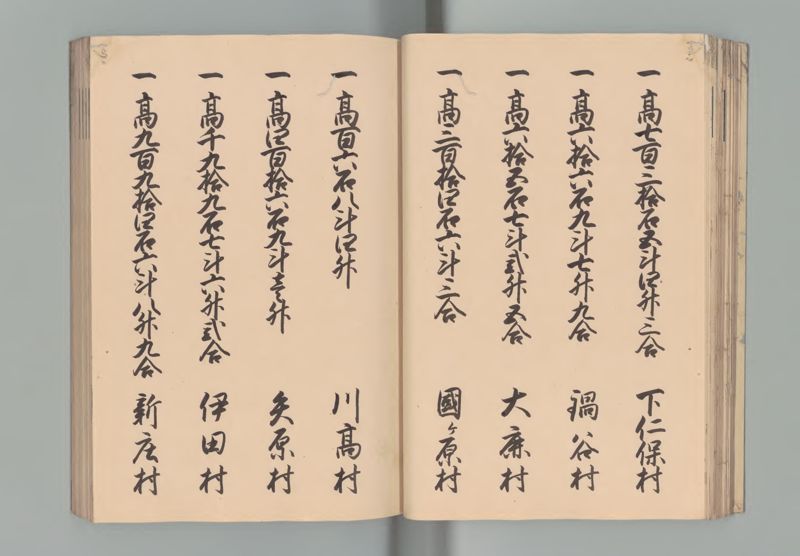 一 高七百三拾石五斗四升三合 下仁保村
一 高六拾六石九斗七升九合 鍋谷村
一 高六拾五石七斗弐升五合 大鹿村
一 高二百拾四石六斗三合 國ヶ原村
一 高百六石八斗四升 川高村
一 高四百拾六石九斗壱升 矢原村
一 高千九拾九石七斗六升弐合 伊田村
一 高九百九拾四石六斗八升九合 新庄村